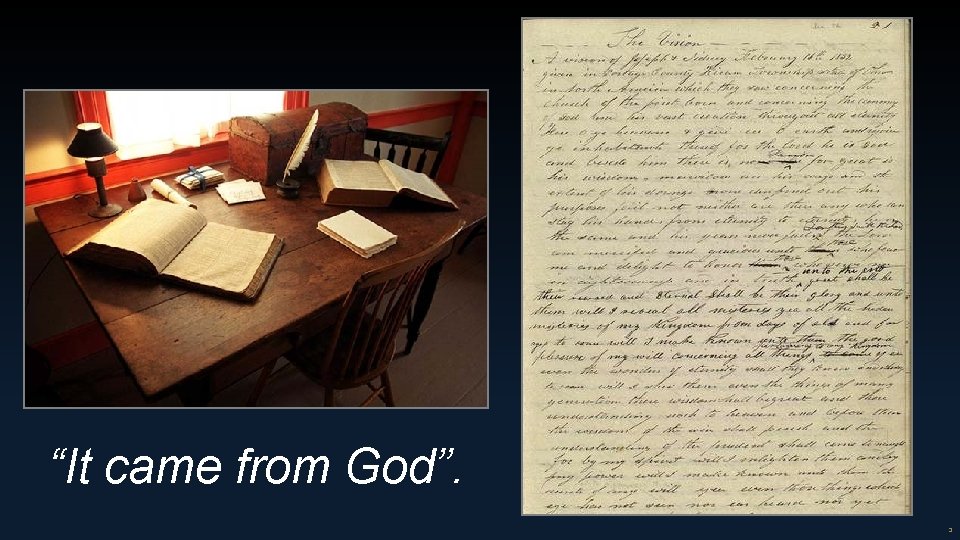 “It came from God”.
The Vision
A vision of Joseph & Sidney February 16th 1832
given in Portage County Hiram Township state of Ohio
in North America which they saw concerning the
church of the first born and concerning the
and how his vast creation throughout all eternity
Hear O ye heavens & give ear O earth and rejoice
ye inhabitants thereof for the Lord he is God
and beside him there is no for great is
his wisdom marvelous are his ways and the
extent of his doings none can find out his
purposes fail not neither are there any who can
stay his hand from eternity to eternity he is
the same and his years never fail
merciful and gracious unto those who fear
me and delight to honor
in righteousness and in truth great shall be
their reward and Eternal shall be their glory and unto
them will I reveal all mysteries yea all the hidden
mysteries of my Kingdom from days of old and for
ages to come will I make known unto them the good
pleasure of my will concerning all things
even the wonders of eternity shall they know and things
to come will I shew them even the things of many
generations their wisdom shall be great and their
understanding reach to heaven and before them
the wisdom of the wise shall perish and the
understanding of the prudent shall come to naught
for by my spirit will I enlighten them and by
my power will I make known unto them the
secrets of my will yea even those things which
eye has not seen nor ear heard nor yet
3